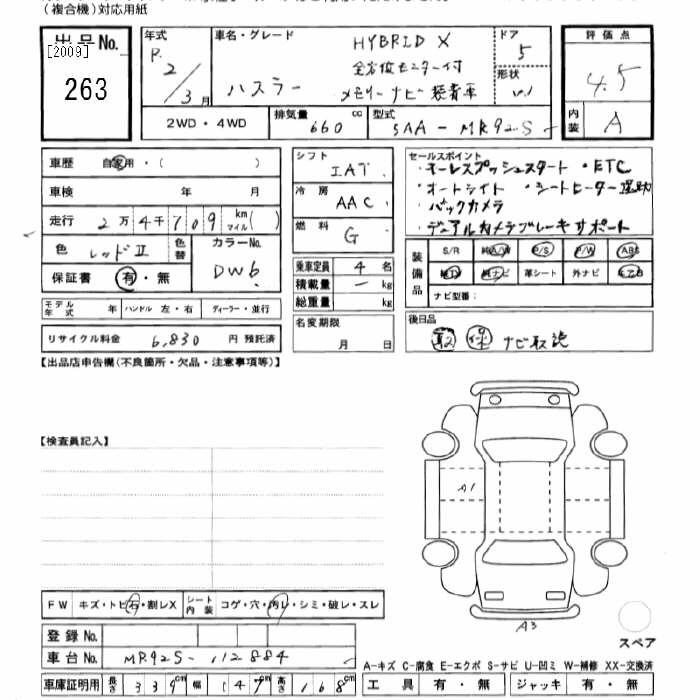 （複合機）対応用紙
出品No.
[2009]
263
年式
R.
2/3月
車名・グレード
HYBRID X
ハスラー
全方位モニター付
メモリーナビ装着車
ドア
5
形状
評価点
4.5
内装
A
2WD・4WD
排気量
660 cc
型式
5AA-MR92S
車歴 自家用・( )
車検 年 月
走行 2万4千709 km マイル( )
色 レッドII 色替
カラーNo.
DW6
保証書 有・無
シフト
IAT
冷房
AAC
燃料
G
乗車定員 4名
積載量 ー kg
総重量 kg
セールスポイント
・キーレスプッシュスタート ・ETC
・オートライト ・シートヒーター 運助
・バックカメラ
・デュアルカメラブレーキサポート
装備品
S/R 純A/W P/S P/W ABS
純ナビ 革シート 外ナビ
ナビ型番：
モデル年式 年 ハンドル 左・右 ディーラー・並行
リサイクル料金 6,830 円 預託済
名変期限
月 日
後日品
取 保 ナビ取説
【出品店申告欄（不良箇所・欠品・注意事項等）】
【検査員記入】
A1
A3
スペア
FW キズ・トビ石・割レX シート内装 コゲ・穴・汚レ・シミ・破レ・スレ
登録No.
車台No. MR92S-112884
A-キズ C-腐食 E-エクボ S-サビ U-凹ミ W-補修 XX-交換済
車庫証明用 長さ 339cm 幅 147cm 高さ 168cm
工具 有・無 ジャッキ 有・無